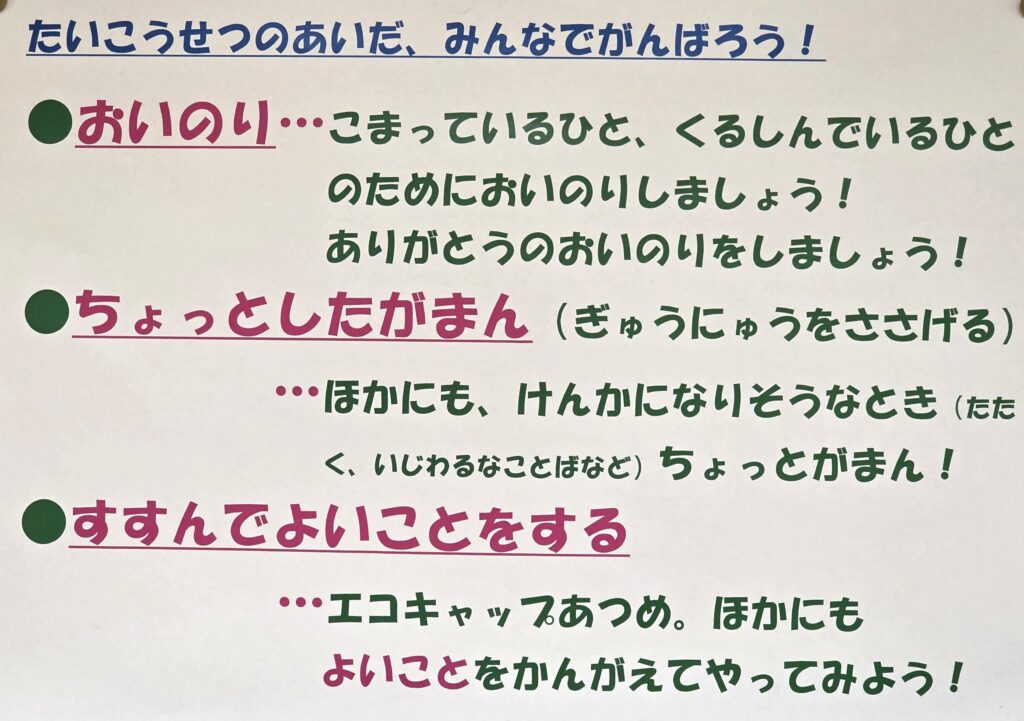 たいこうせつのあいだ、みんなでがんばろう！
●おいのり…こまっているひと、くるしんでいるひと
のためにおいのりしましょう！
ありがとうのおいのりをしましょう！
●ちょっとしたがまん（ぎゅうにゅうをささげる）
…ほかにも、けんかになりそうなとき（たた
く、いじわるなことばなど）ちょっとがまん！
●すすんでよいことをする
…エコキャップあつめ。ほかにも
よいことをかんがえてやってみよう！